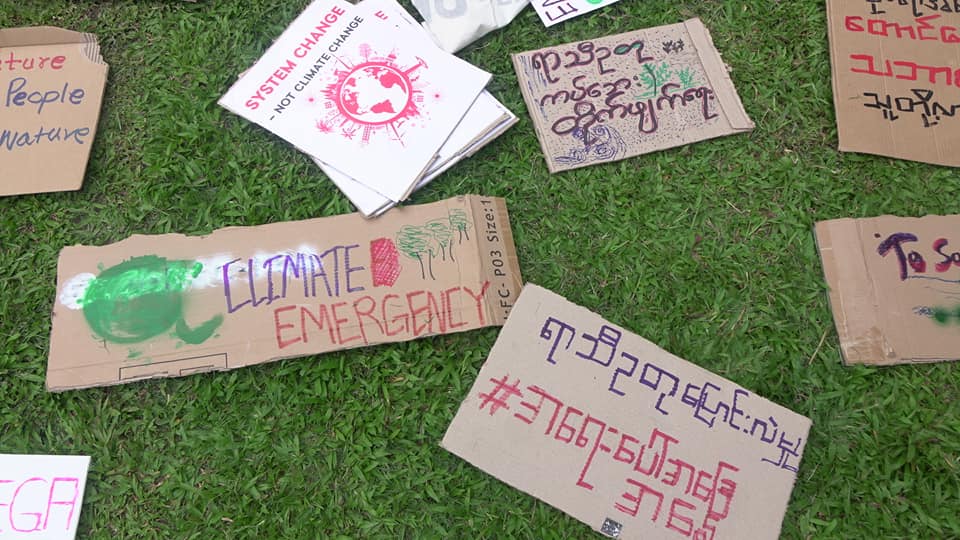 ature
People
Nature
SYSTEM CHANGE
- NOT CLIMATE CHANGE
ရာသီဥတု
ကပ်ဘေး
ထိုက်ဖျက်ရေး
CLIMATE
EMERGENCY
FC- P03 Size:1
ရာသီဥတုပြောင်းလဲမှု
#အရေးပေါ်အခြေ
အနေ
To Sa
EGA